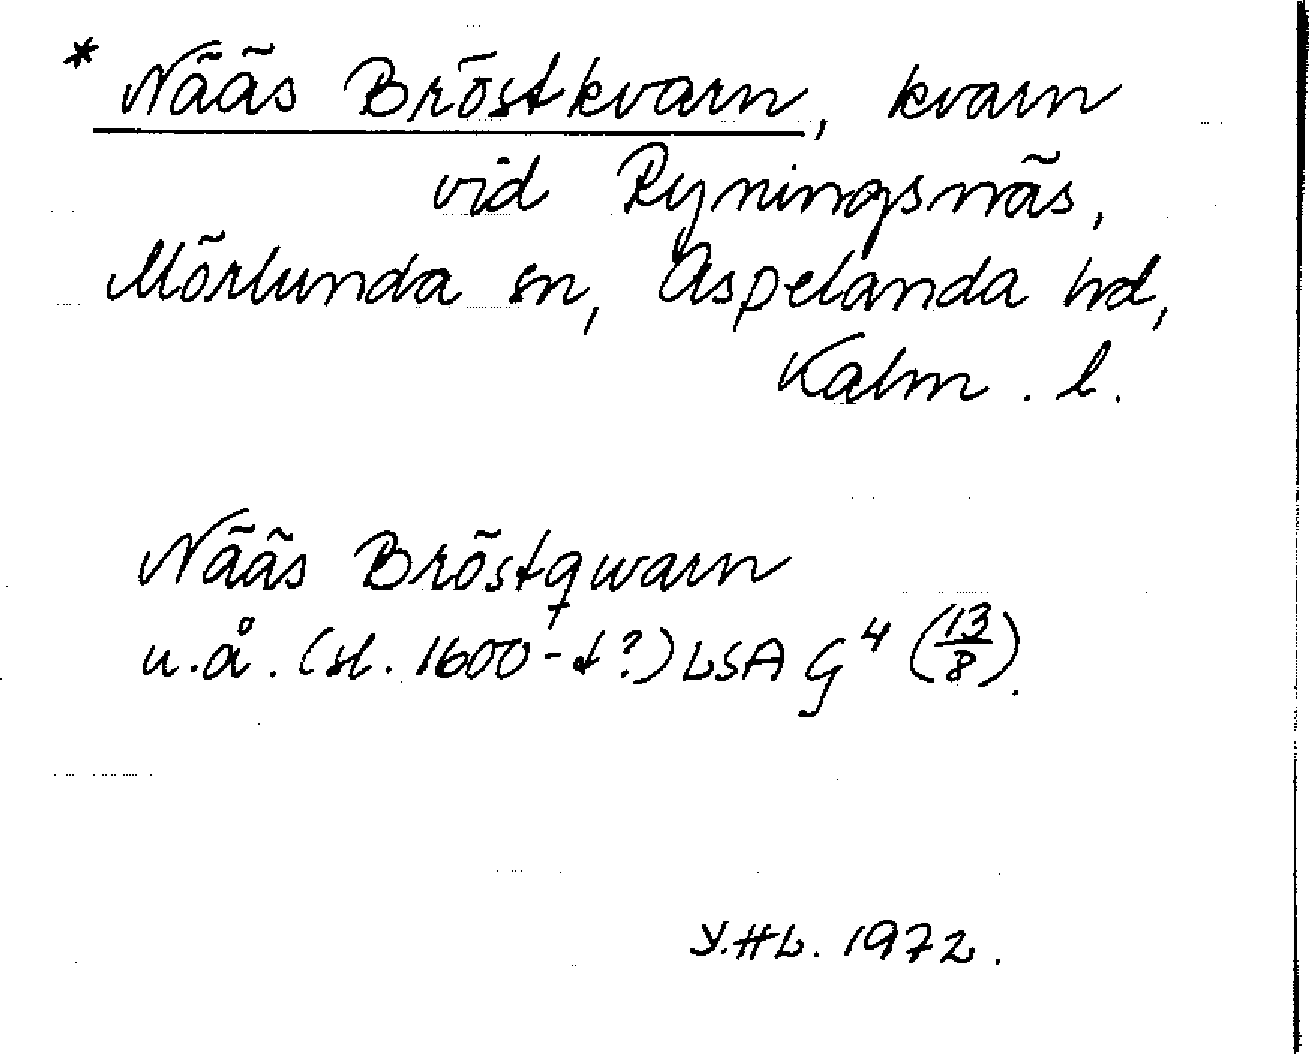 * Nääs Bröstkvarn, kvarn
vid Ryningsnäs,
Mörlunda sn, Aspelanda hd,
Kalm. l.
Nääs Bröstqwarn
u.å. (sl. 1600-t?) LSA G⁴ (13/8).
Y.HL. 1972.